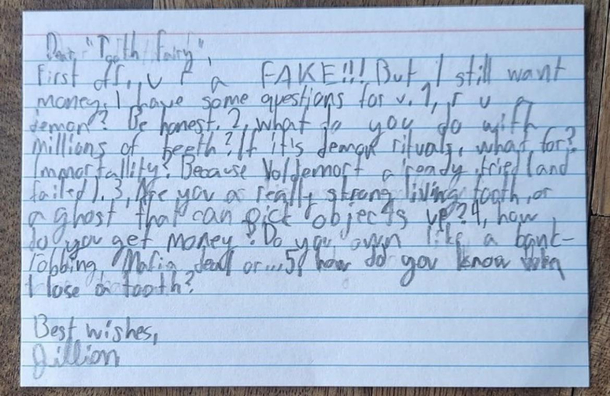 Dear "Tooth Fairy",
First off, u r a FAKE!!! But I still want
money. I have some questions for u. 1, r u a
demon? Be honest. 2, what do you do with
millions of teeth? If it's demon rituals, what for?
Immortallity? Because Voldemort already tried (and
failed). 3, Are you a really strong living tooth, or
a ghost that can pick objects up? 4, how
do you get money? Do you own like a bank-
robbing Mafia deal or... 5, how do you know when
I lose a tooth?
Best wishes,
Jillian